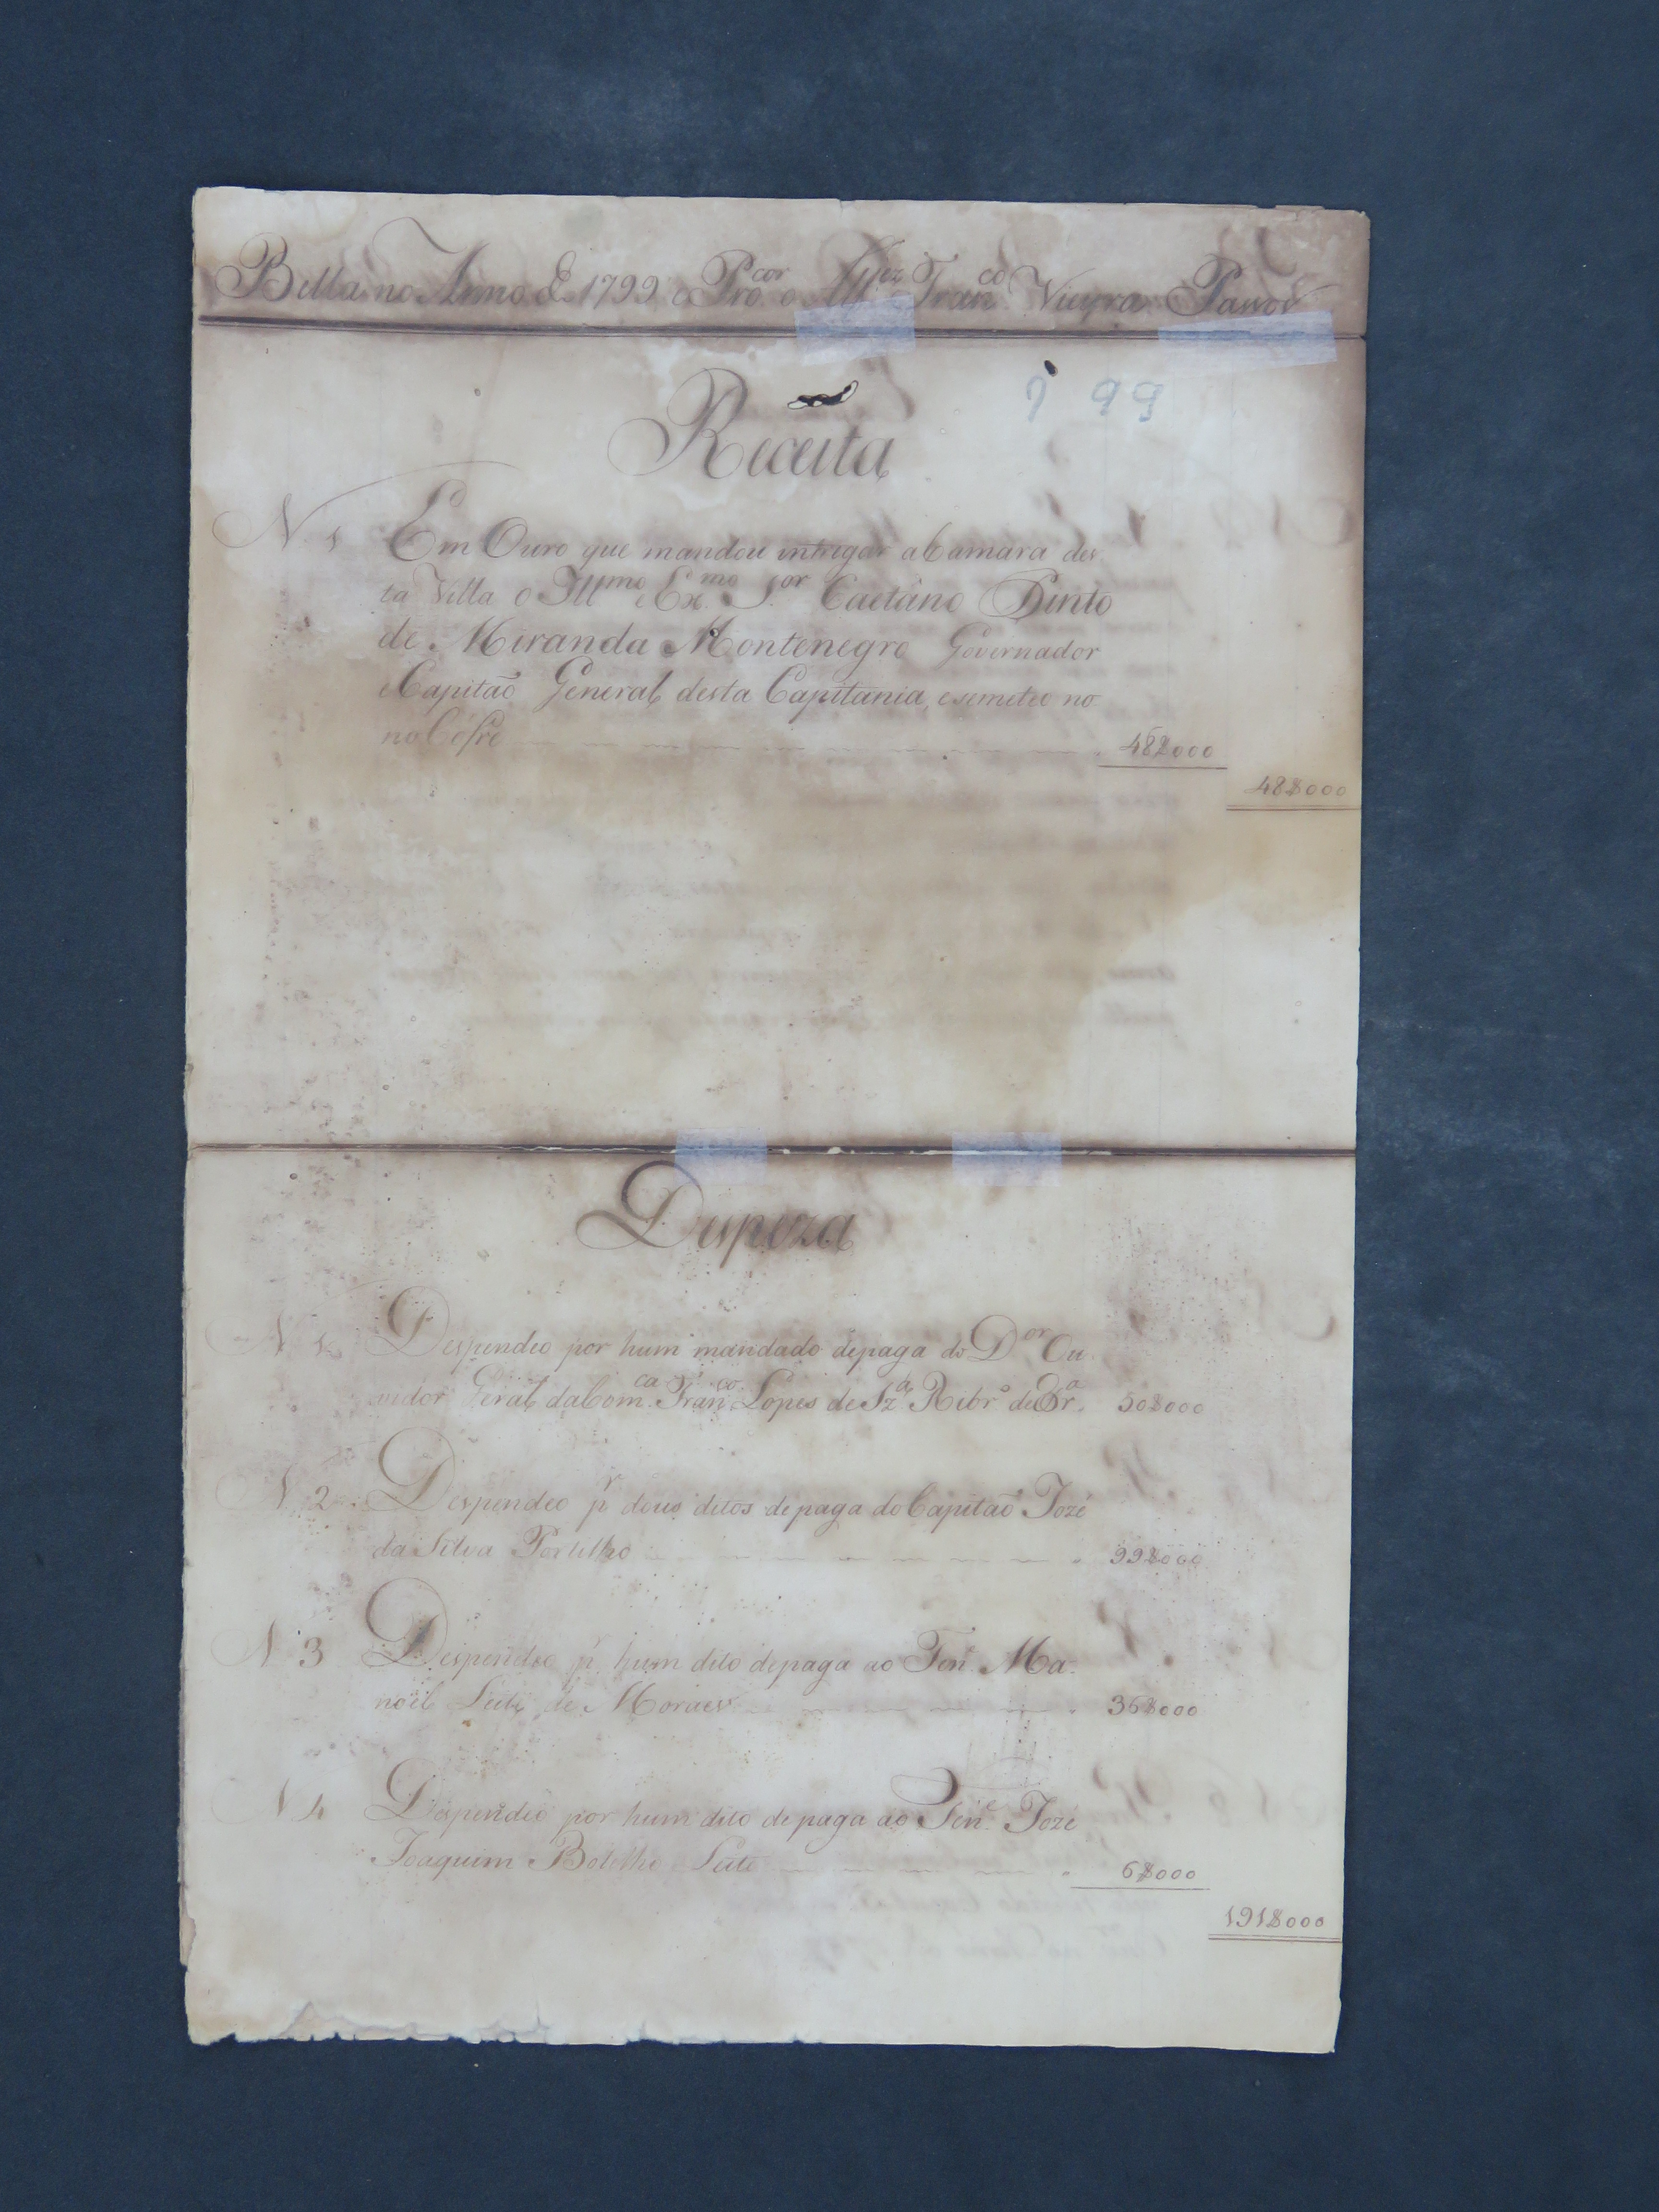 Bella no Anno de 1799 Pro.cor o Alf.ez Fran.co Vieyra Passos
1799
Receita
N. 1 Em Ouro que mandou intregar a Camara des
ta Villa o Ill.mo e Ex.mo S.or Caetano Pinto
de Miranda Montenegro Governador
e Capitaõ General desta Capitania, e semeteo no
no Cofre 48$000
48$000
Despeza
N. 1. Despendeo por hum mandado depaga do D.or Ou
vidor Geral da Com.ca Fran.co Lopes de Sz.a Ribr.o de Br.a 50$000
N. 2. Despendeo p.r dous ditos depaga do Capitaõ Jozé
da Silva Portelho 99$000
N. 3 Despendeo p.r hum dito depaga ao Ten.e Ma
noel Leite de Moraes 36$000
N. 4 Despendeo por hum dito de paga ao Ten.e Jozé
Joaquim Botelho Leite 6$000
191$000